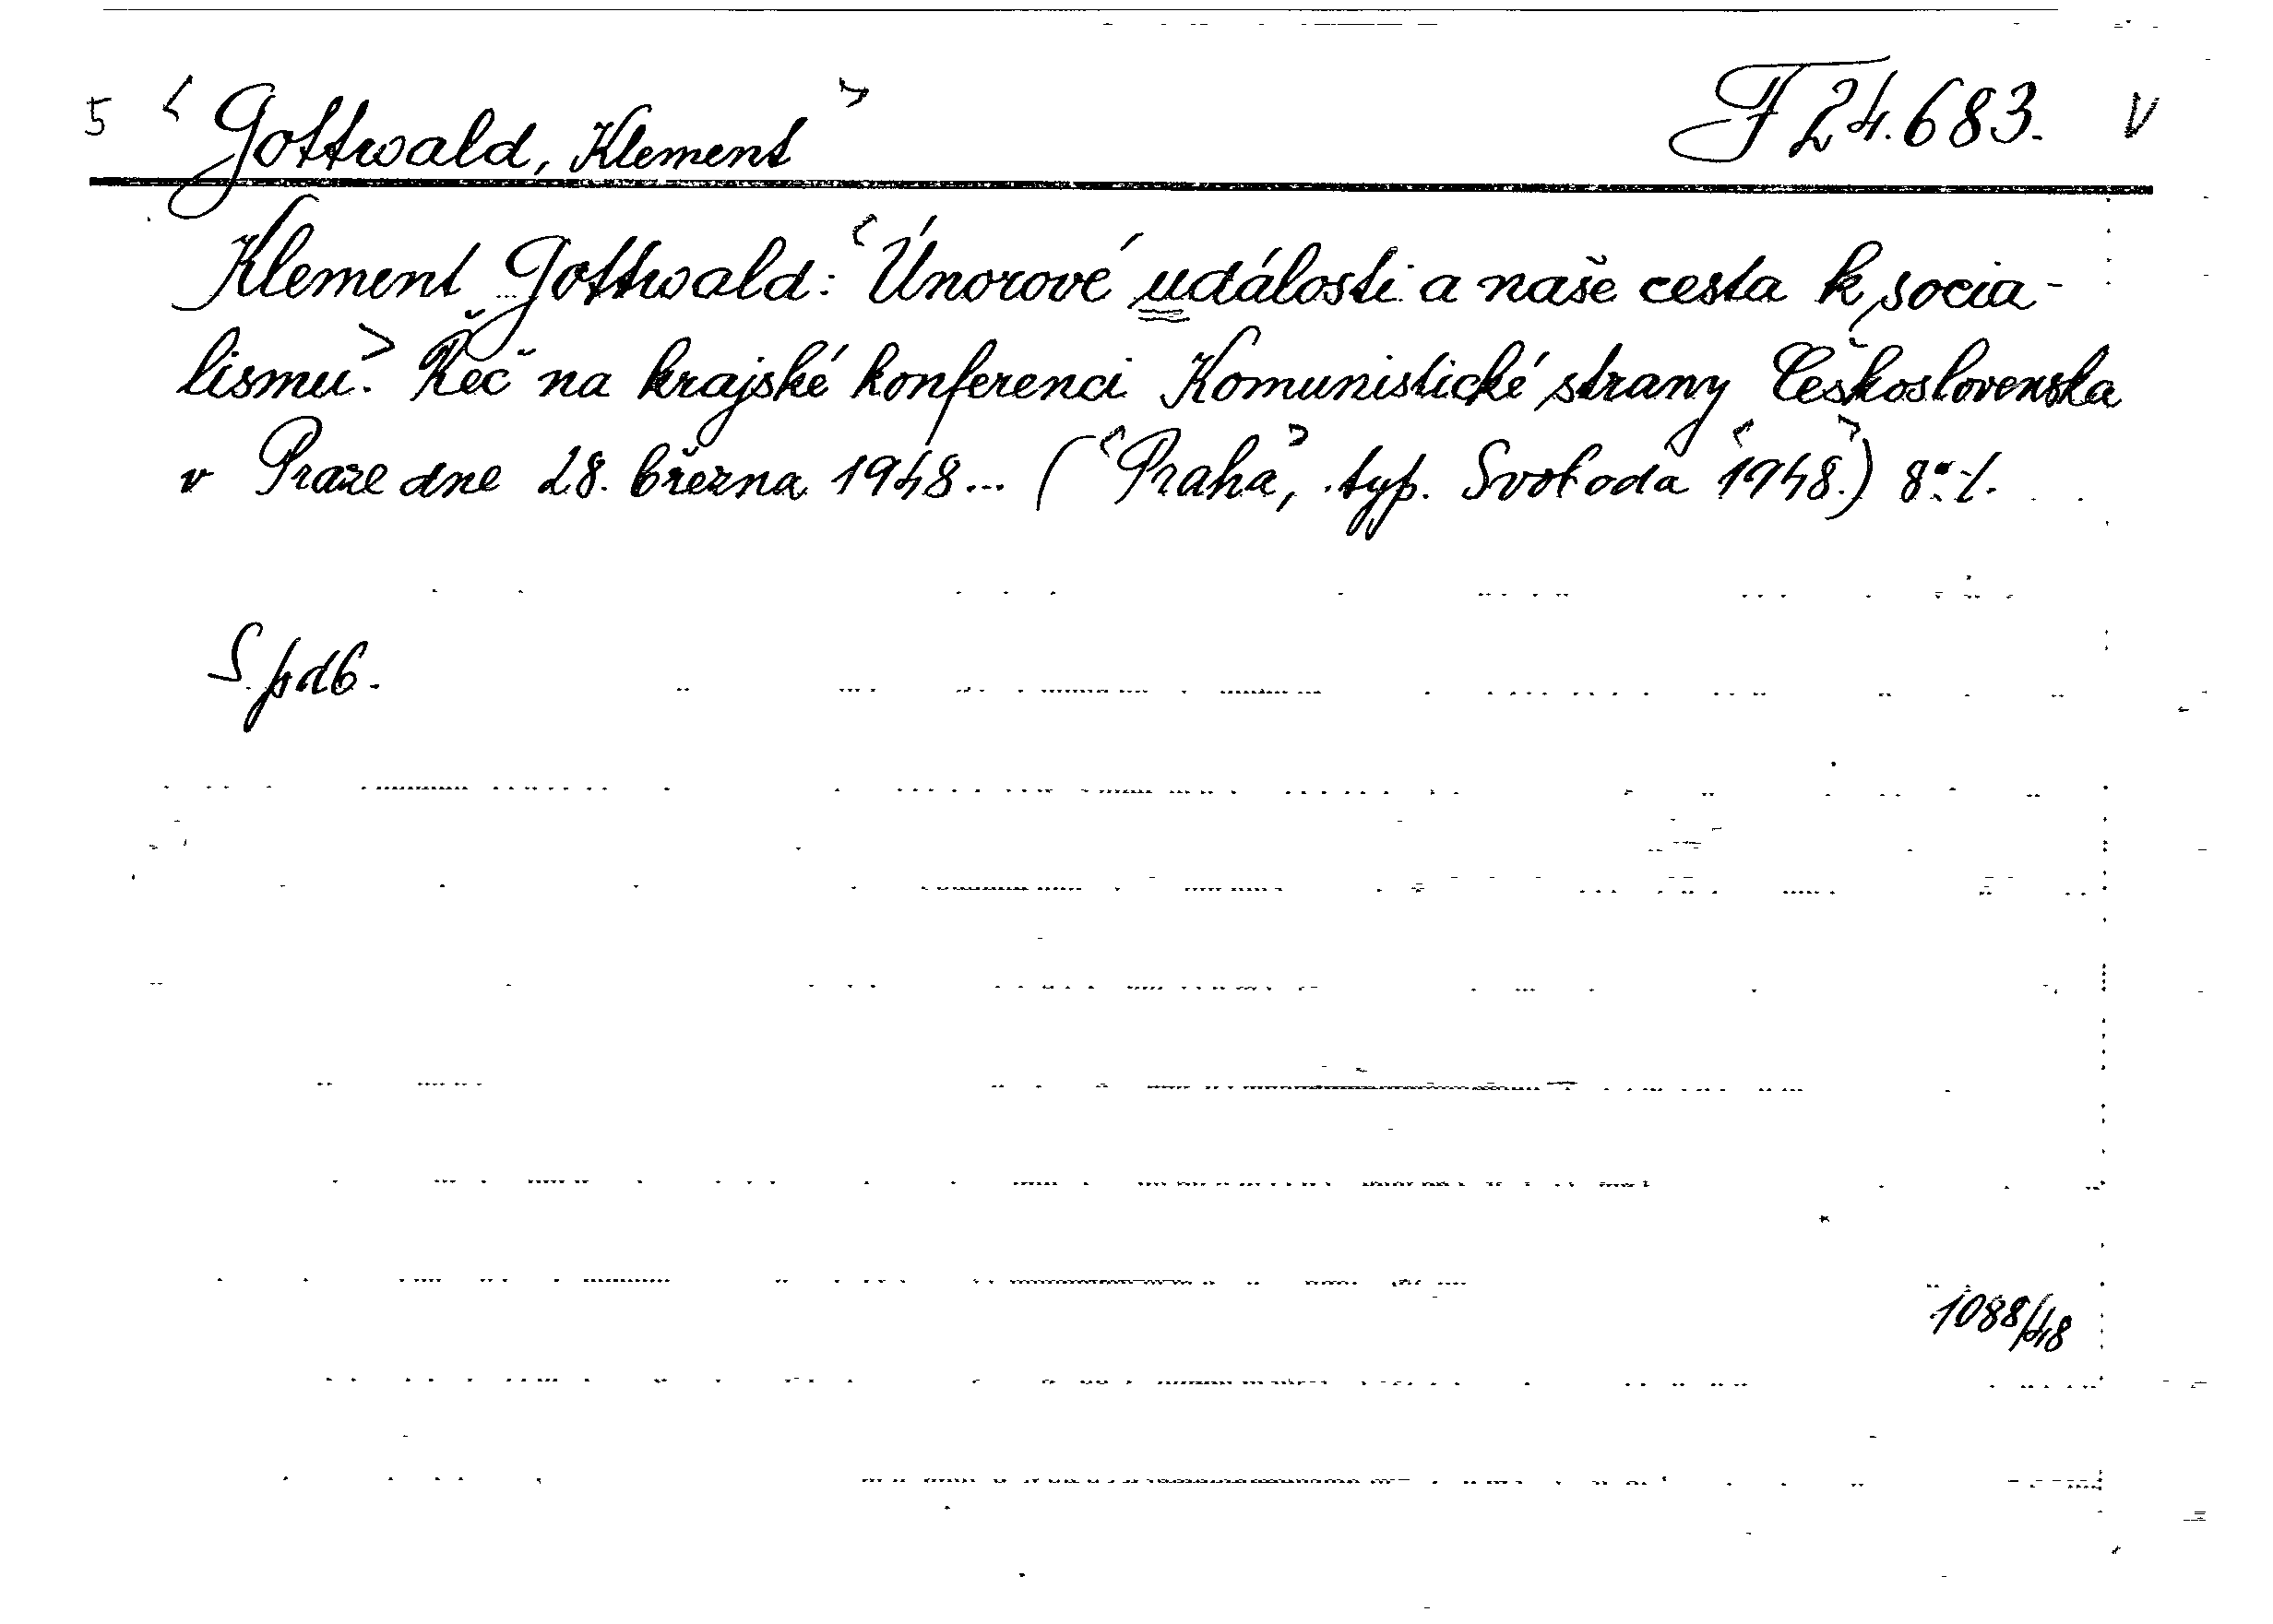 5 < Gottwald, Klement > F 24.683. V
Klement Gottwald: <Únorové události a naše cesta k socia-
lismu.> Řeč na krajské konferenci Komunistické strany Československa
v Praze dne 28. března 1948... (<Praha>, typ. Svoboda <1948>.) 8°. /.
S. pdb.
1088/48